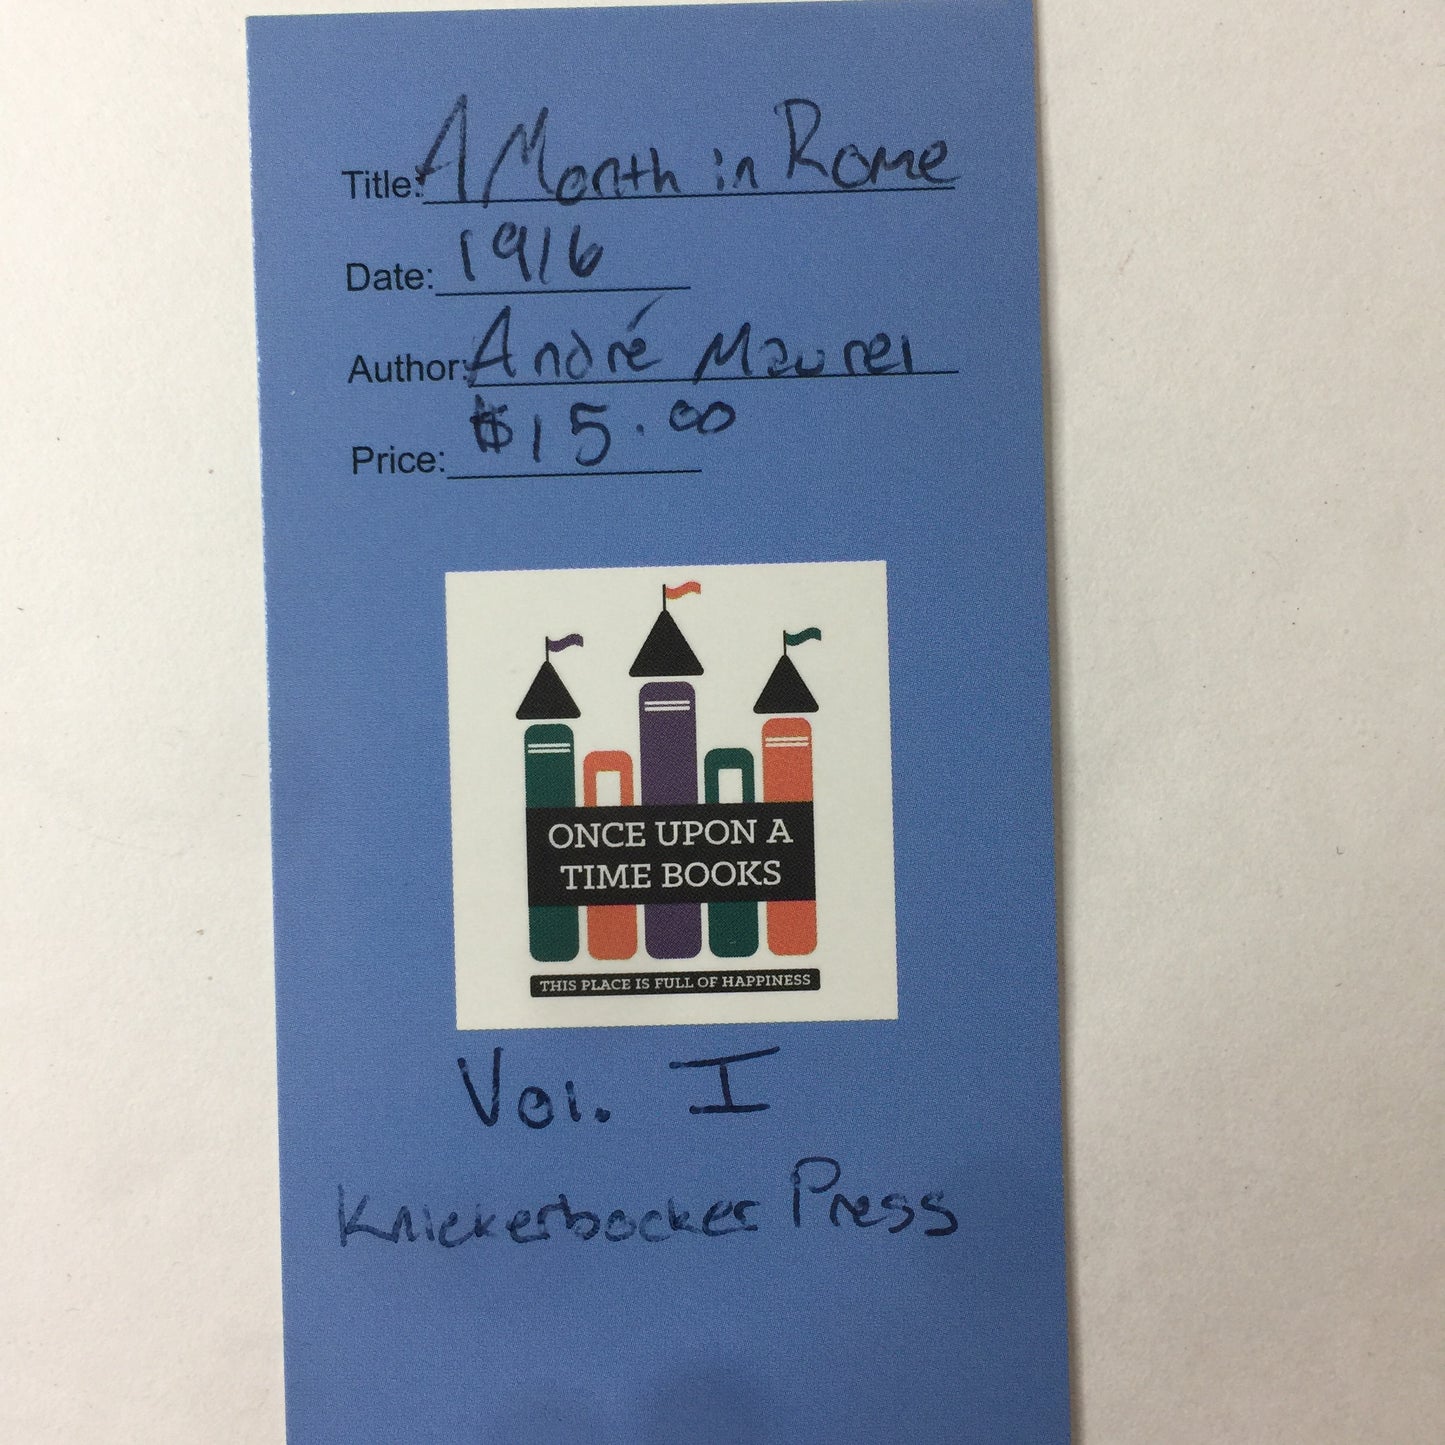 Title: A Month in Rome
Date: 1916
Author: André Maurel
Price: $15.00
ONCE UPON A
TIME BOOKS
THIS PLACE IS FULL OF HAPPINESS
Vol. I
Knickerbocker Press